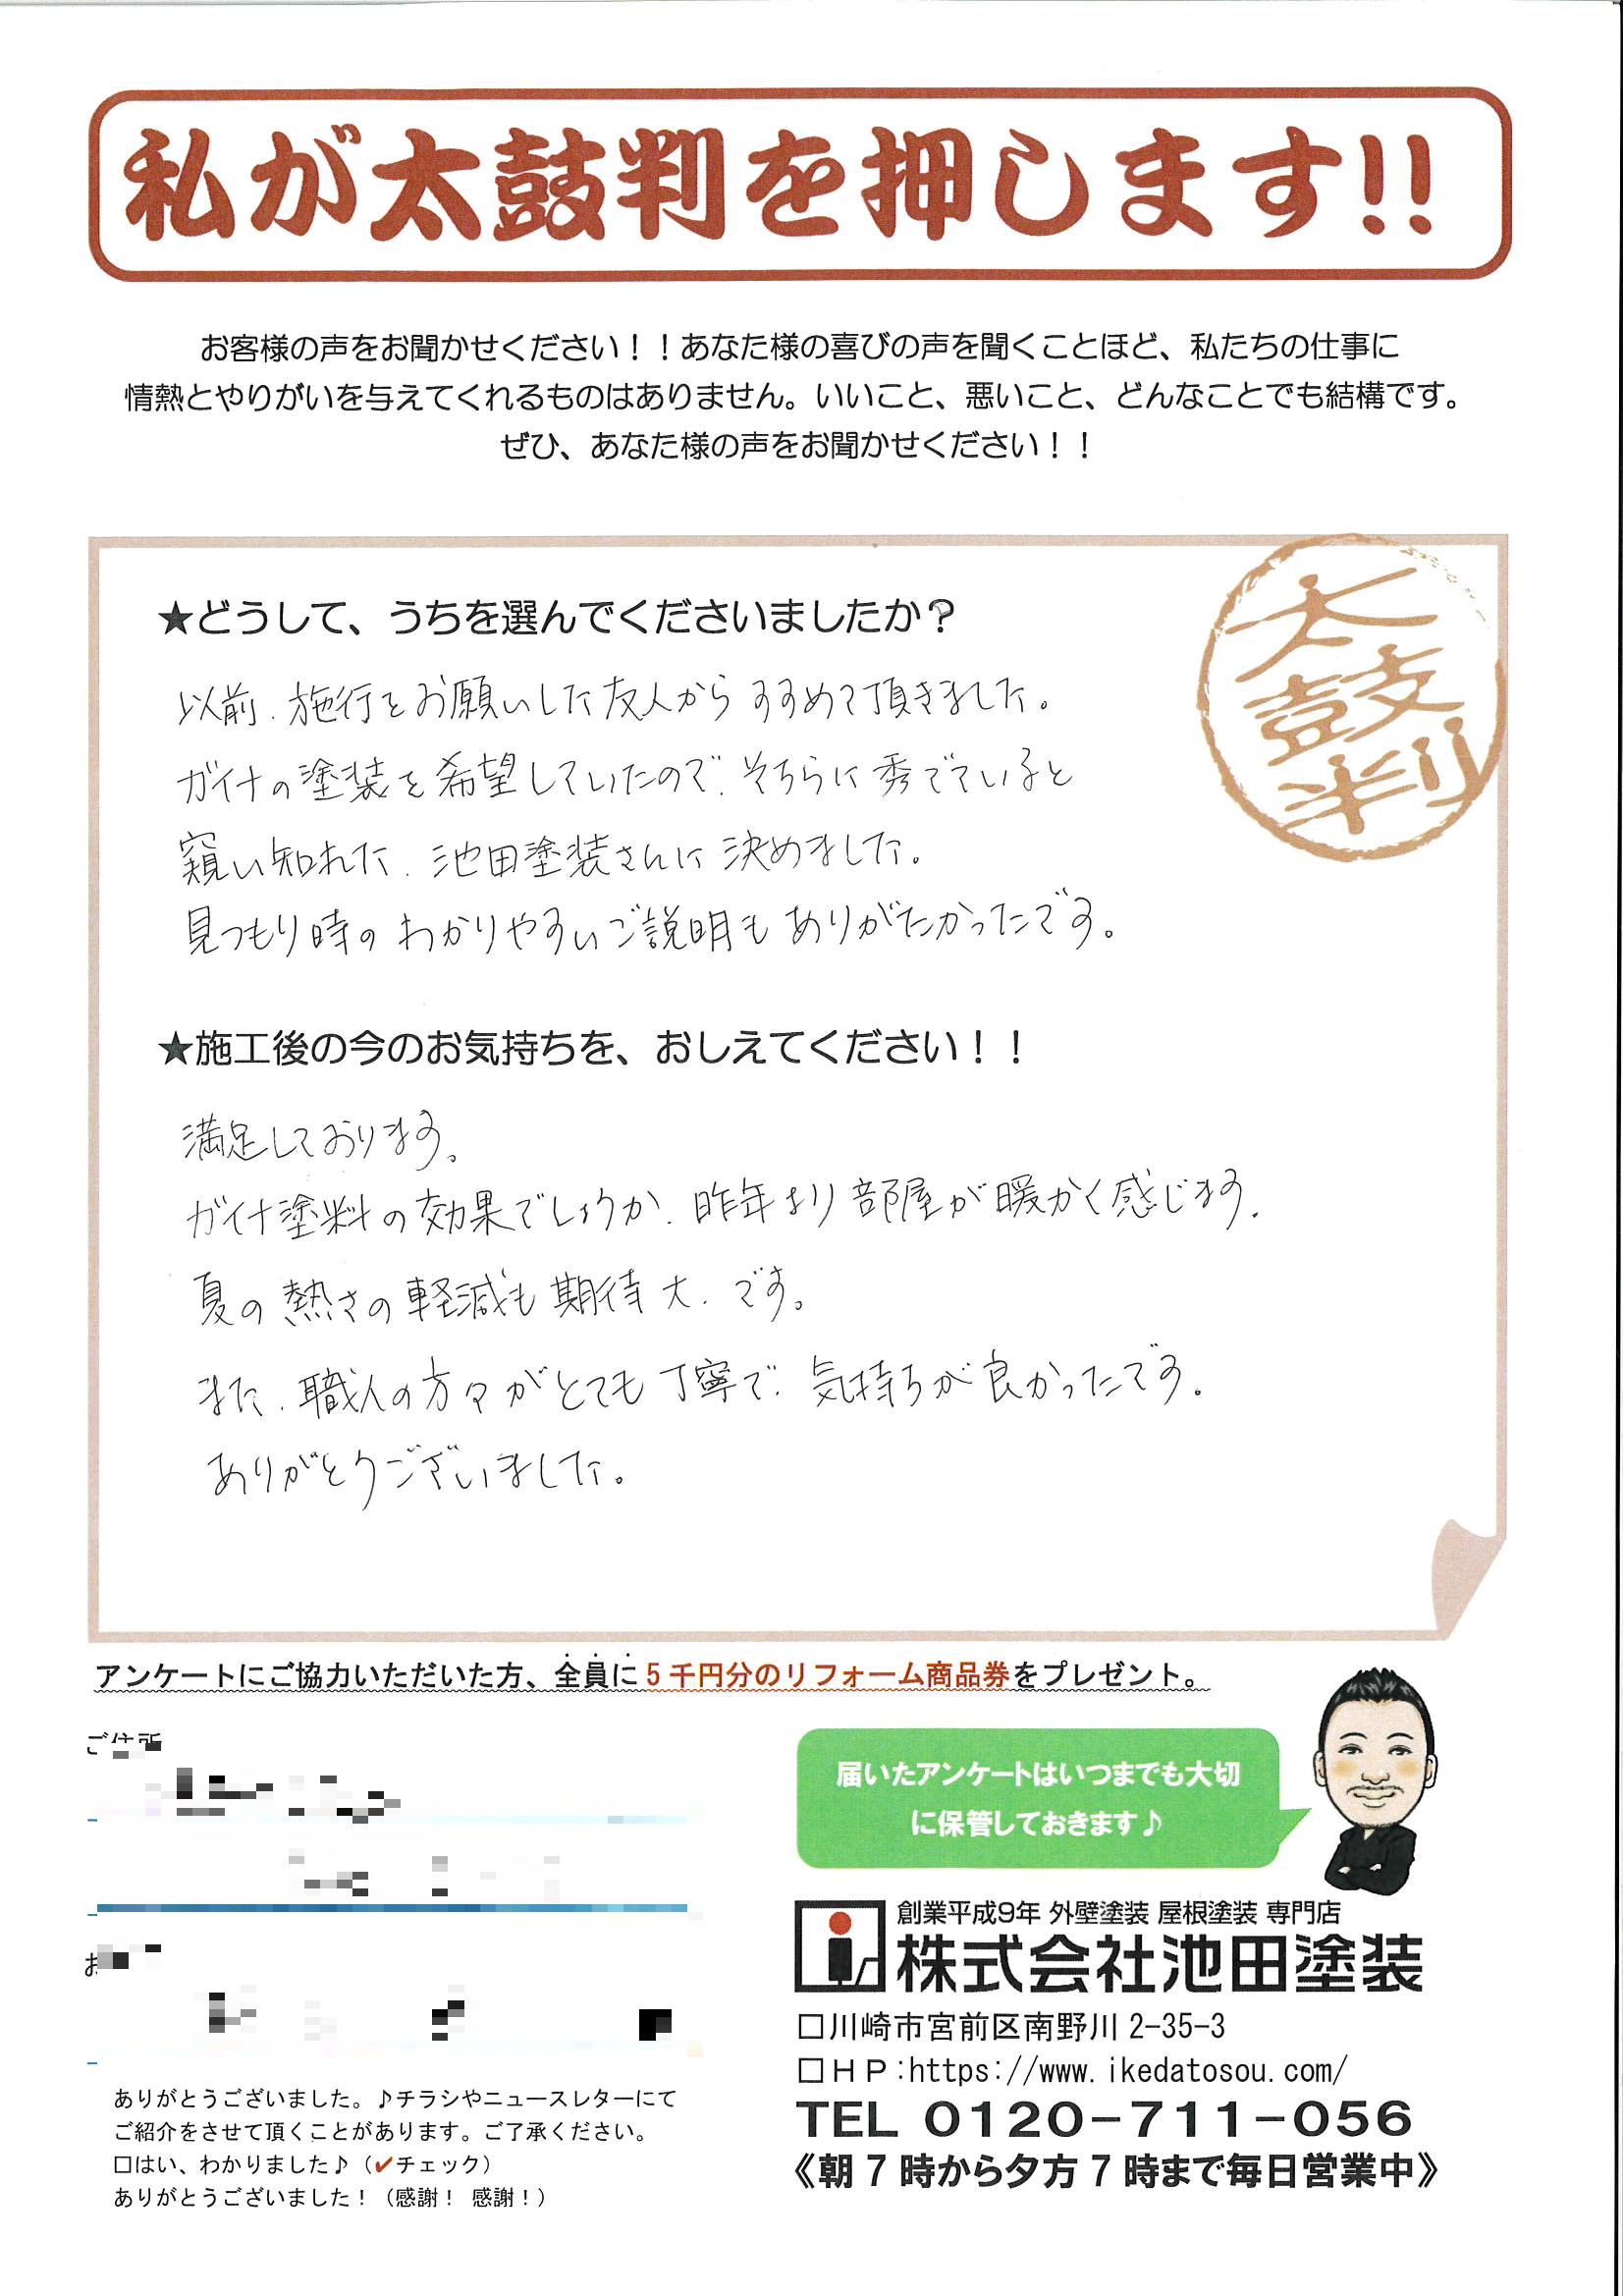 私が太鼓判を押します!!
お客様の声をお聞かせください！！あなた様の喜びの声を聞くことほど、私たちの仕事に
情熱とやりがいを与えてくれるものはありません。いいこと、悪いこと、どんなことでも結構です。
ぜひ、あなた様の声をお聞かせください！！
太鼓判
★どうして、うちを選んでくださいましたか？
以前、施行をお願いした友人からすすめて頂きました。
ガイナの塗装を希望していたので、そちらに秀でていると
窺い知れた、池田塗装さんに決めました。
見つもり時のわかりやすいご説明もありがたかったです。
★施工後の今のお気持ちを、おしえてください！！
満足しております。
ガイナ塗料の効果でしょうか、昨年より部屋が暖かく感じます。
夏の熱さの軽減も期待大、です。
また、職人の方々がとても丁寧で、気持ちが良かったです。
ありがとうございました。
アンケートにご協力いただいた方、全員に5千円分のリフォーム商品券をプレゼント。
ご住所
届いたアンケートはいつまでも大切
に保管しておきます♪
創業平成9年 外壁塗装 屋根塗装 専門店
株式会社池田塗装
□川崎市宮前区南野川2-35-3
□ＨＰ:https://www.ikedatosou.com/
TEL 0120-711-056
《朝7時から夕方7時まで毎日営業中》
ありがとうございました。♪チラシやニュースレターにて
ご紹介をさせて頂くことがあります。ご了承ください。
□はい、わかりました♪（✔チェック）
ありがとうございました！（感謝！ 感謝！）